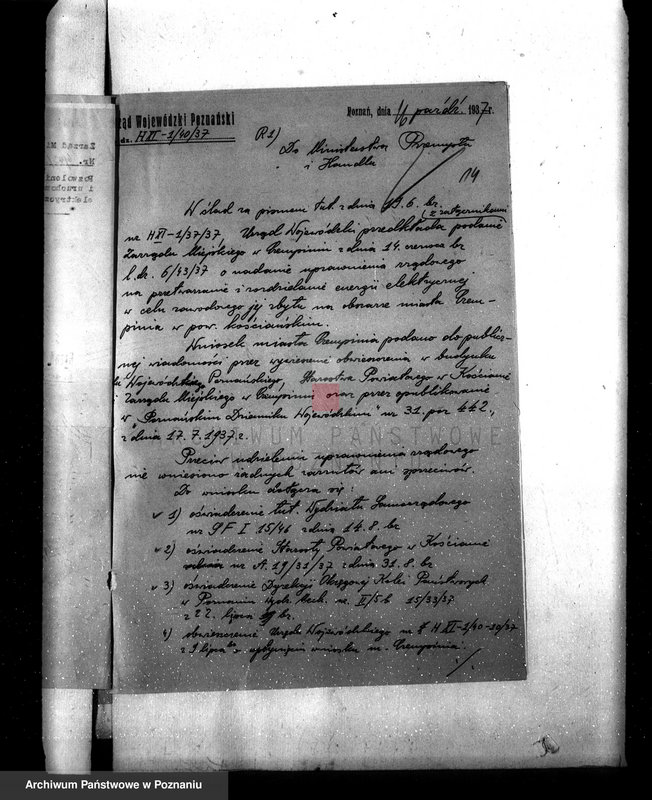 ząd Wojewódzki Poznański
dz. H XI-1/40/37
Poznań, dnia 16 paźdź. 1937 r.
R1)
Do Ministerstwa Przemysłu
i Handlu
14
W ślad za pismem tut. z dnia 19.6. br.
(z załącznikami
nr H XI-1/37/37, Urząd Wojewódzki przedkłada podanie
Zarządu Miejskiego w Czempiniu z dnia 14. czerwca br
l.dz. 6/43/37 o nadanie uprawnienia rządowego
na przetwarzanie i rozdzielanie energii elektrycznej
w celu zawodowego jej zbytu na obszarze miasta Czem-
pinia w pow. kościańskim.
Wniosek miasta Czempinia podano do publicz-
nej wiadomości przez wywieszenie obwieszczenia w budynku
Wojewódzkiego Poznańskiego, Starostwa Powiatowego w Kościanie
i Zarządu Miejskiego w Czempiniu oraz przez opublikowanie
w "Poznańskim Dzienniku Wojewódzkim" nr 31. poz. 442.,
z dnia 17.7.1937 r.
Przeciw udzieleniu uprawnienia rządowego
nie wniesiono żadnych zarzutów ani sprzeciwów.
Do wniosku dołącza się:
1) oświadczenie tut. Wydziału Samorządowego
nr PF I 15/46 z dnia 14.8. br
2) oświadczenie Starosty Powiatowego w Kościanie
nr A. 19/31/37 z dnia 31.8. br
3) oświadczenie Dyrekcji Okręgowej Kolei Państwowych
w Poznaniu nr. II/5b 15/33/37
z 22. lipca br.
4) obwieszczenie Urzędu Wojewódzkiego nr H XI-1/40-10/37
z 9 lipca br. wniosku m. Czempinia.
./.
ARCHIWUM PAŃSTWOWE
Zarząd M
Nr.
elektryc
Archiwum Państwowe w Poznaniu